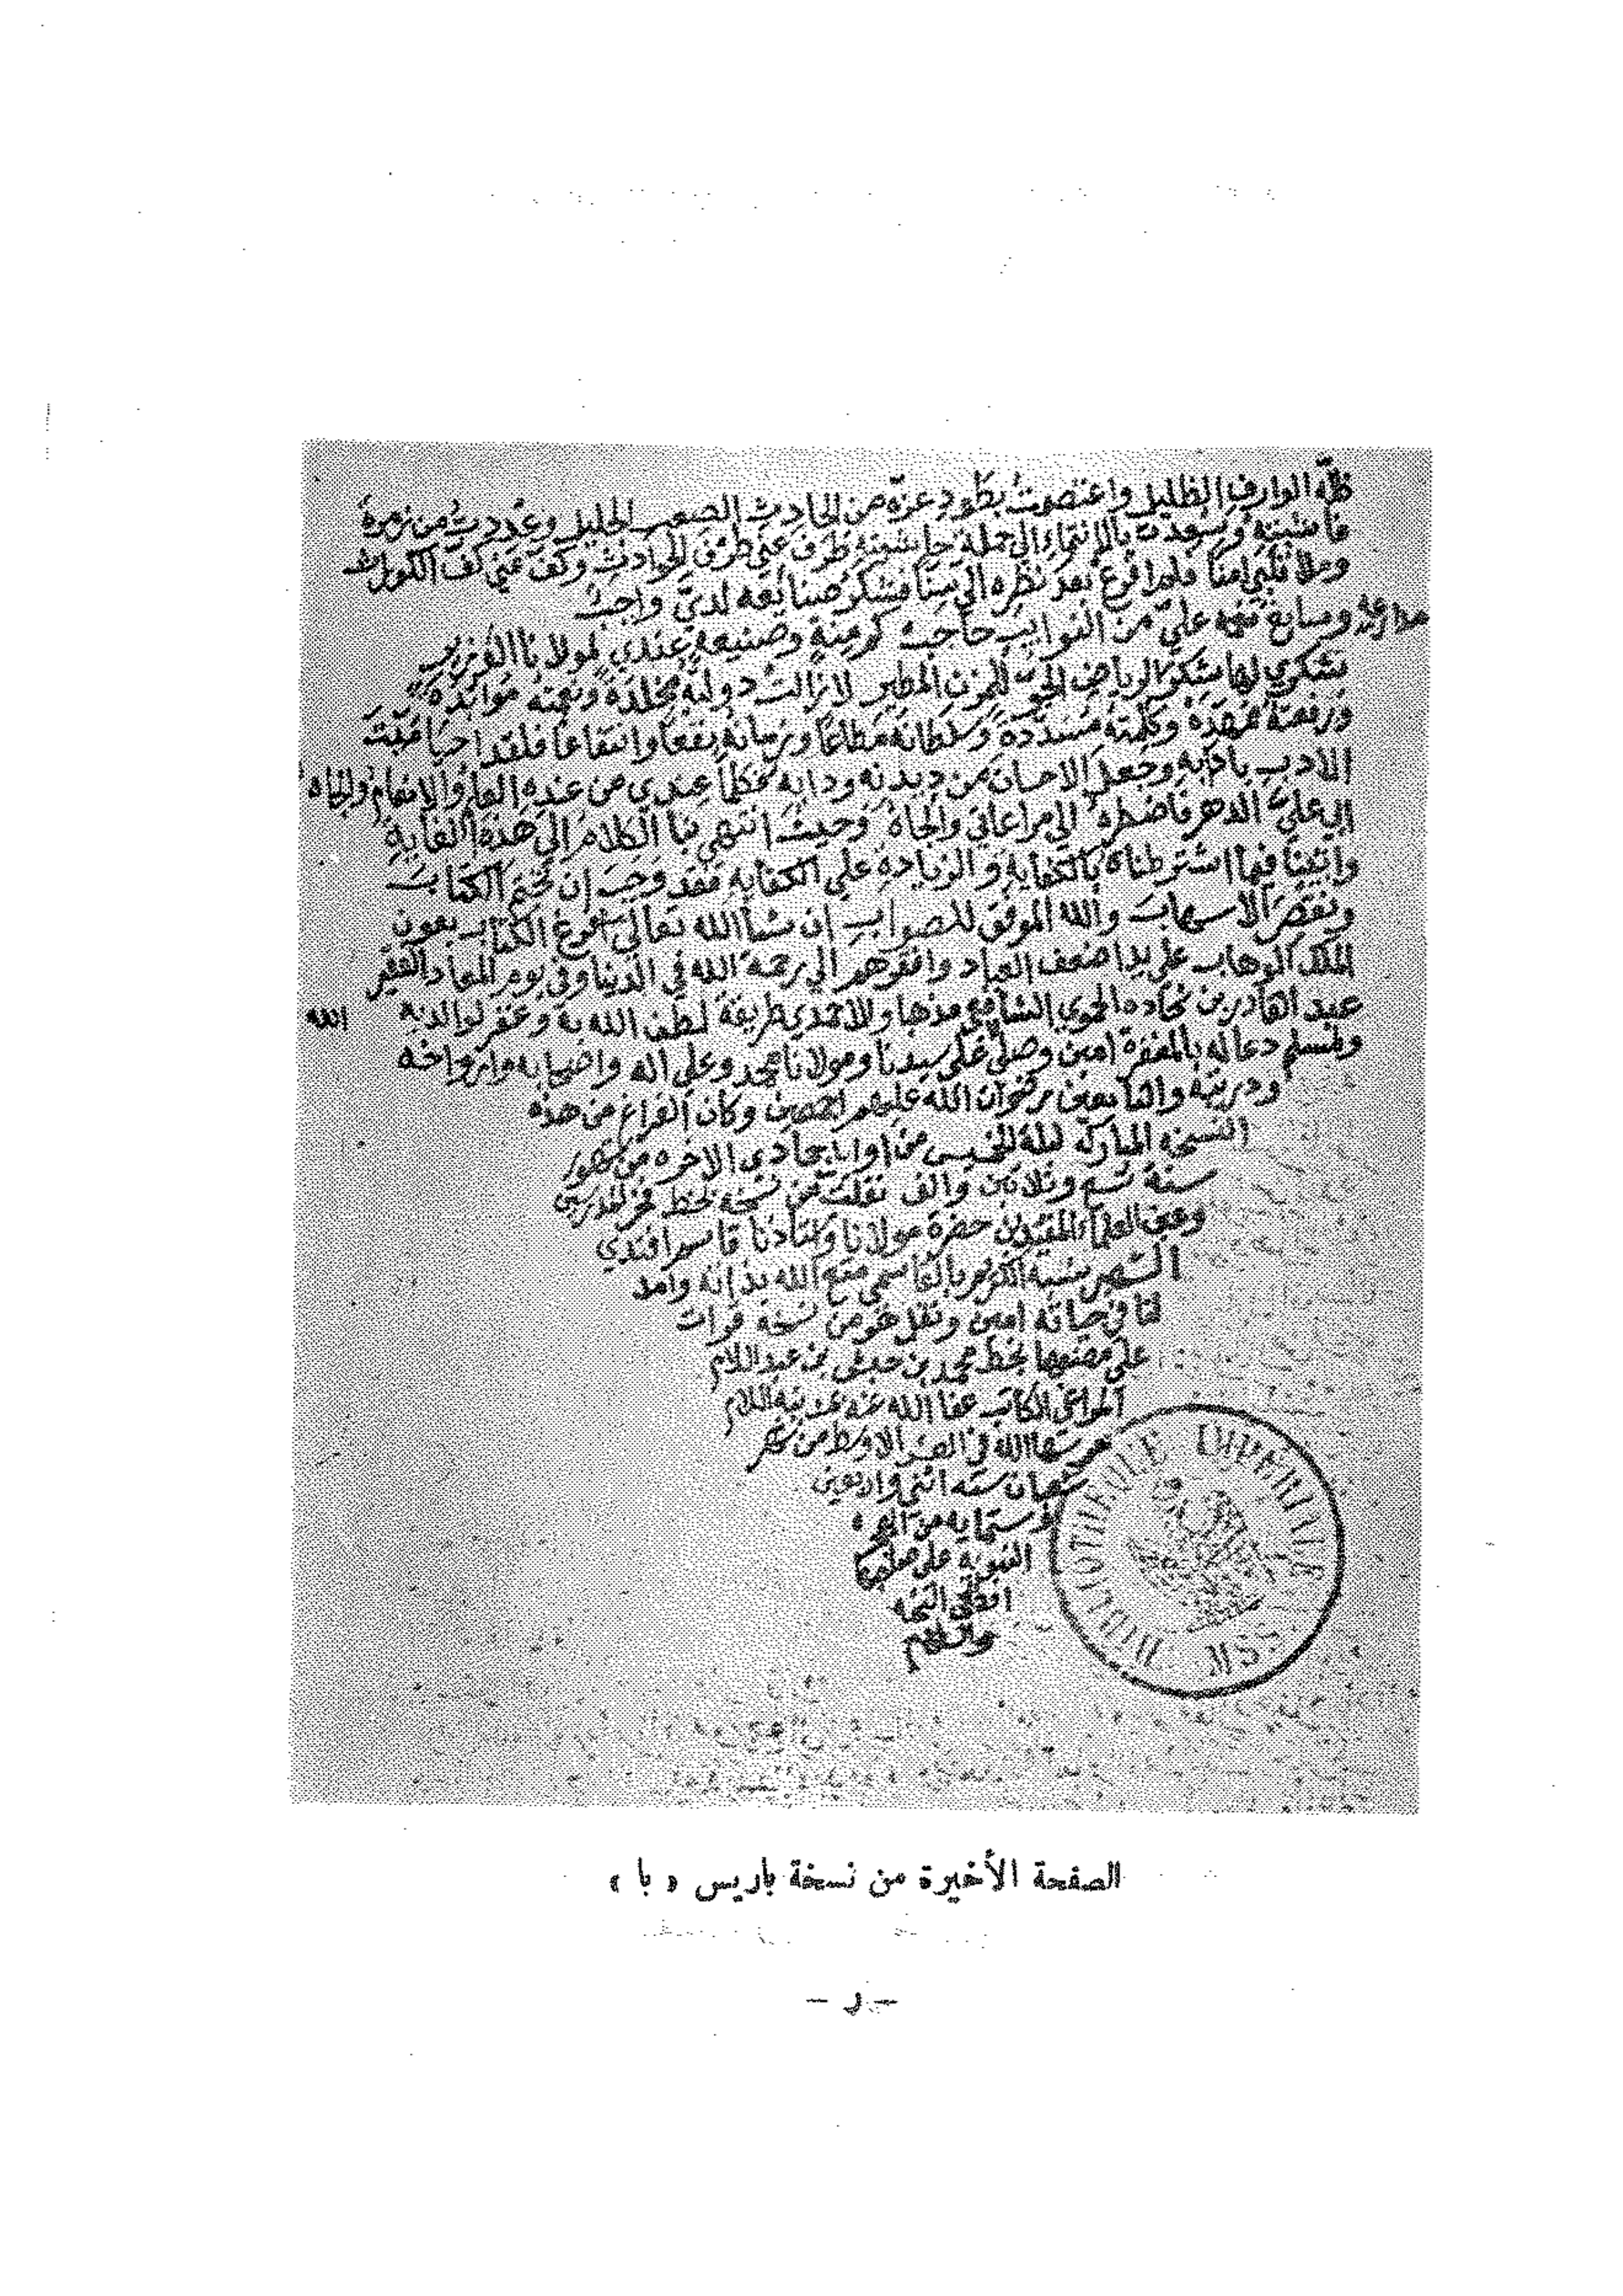 ظله الوارف الظليل واعتصمت بطود عزه من الحادث الصعب الجليل وعددت من زمرة
غاشيته وسعدت بالانتماء الى جملة حاشيته طرف عني طرف الحوادث وكف عني كف الكوارث
وملأ قلبي امنا فلم افرع بعد نظره الي سنا فشكر صنايعه لدي واجب
وسابغ نعمه علي من النوايب حاجب كم منة وصنيعة عندي لمولانا الوزير
شكري لها شكر الرياض الحو للمزن المطير لا زالت دولته مخلدة ونعمته
ورفعته ممهدة وكلمته مسددة وسلطانه مطاعا وزمانه نفعا وانتفاعا فلقد احيا ميت
الادب بادابه وجعل الاحسان من ديدنه ودابه فكلما عندي من عنده العلم والانعام والجاه
الي علي الدهر فاضطره الى مراعاتي والجاه وحيث انتهى بنا الكلام الى هذه الغاية
واتينا فيما اشترطناه بالكفاية والزيادة على الكفاية فقد وجب ان نختم الكتاب
ونقصر الاسهاب والله الموفق للصواب ان شا الله تعالى الكتاب بعون
الملك الوهاب على يد اضعف العباد وافقرهم الى رحمة الله في الدنيا وفي يوم المعاد الفقير
عبد القادر بن الحموي الشافعي مذهبا والاحمدي طريقة لطف الله به وغفر لوالديه
ولمسلم دعا له بالمغفرة امين وصلى الله على سيدنا ومولانا محمد وعلى اله واصحابه وازواجه
وذريته والتابعين رضوان الله عليهم اجمعين وكان الفراغ من هذه
النسخة المباركة ليلة الخميس من اوايل جمادى الاخرة من شهور
سنة تسع وثلاثين والف نقلت من نسخة بخط فخر المدرسين
وعين العلماء حضرة مولانا واستاذنا قاسم افندي
الشهير بنسبه الكريم بالقاسمي متع الله بذاته وامد
لنا في حياته امين ونقل هو من نسخة قرات
على مصنفها بخط محمد بن بن عبد السلام
الكاتب عفا الله عنه بمدينة السلام
حرسها الله في العشر الاوسط من شهر
شعبان سنة اثني واربعين
وستماية من الهجرة
النبوية على صاحبها
افضل التحية
والسلام
BIBLIOTHEQUE IMPERIALE MSS
الصفحة الأخيرة من نسخة باريس « با »
– ر –